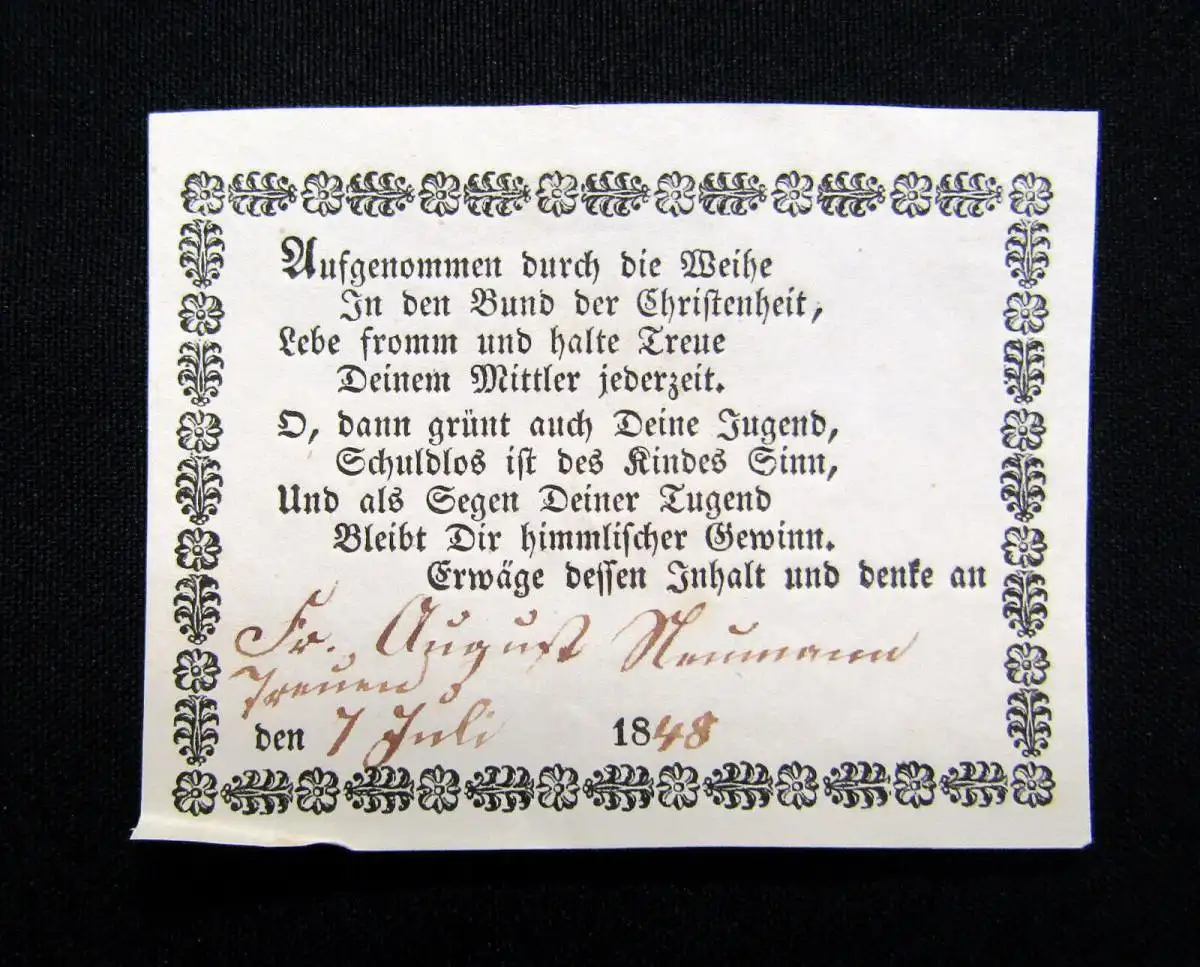 Aufgenommen durch die Weihe
In den Bund der Christenheit,
Lebe fromm und halte Treue
Deinem Mittler jederzeit.
O, dann grünt auch Deine Jugend,
Schuldlos ist des Kindes Sinn,
Und als Segen Deiner Tugend
Bleibt Dir himmlischer Gewinn.
Erwäge dessen Inhalt und denke an
Fr. August Neumann
Treuen
den 7 Juli 1848